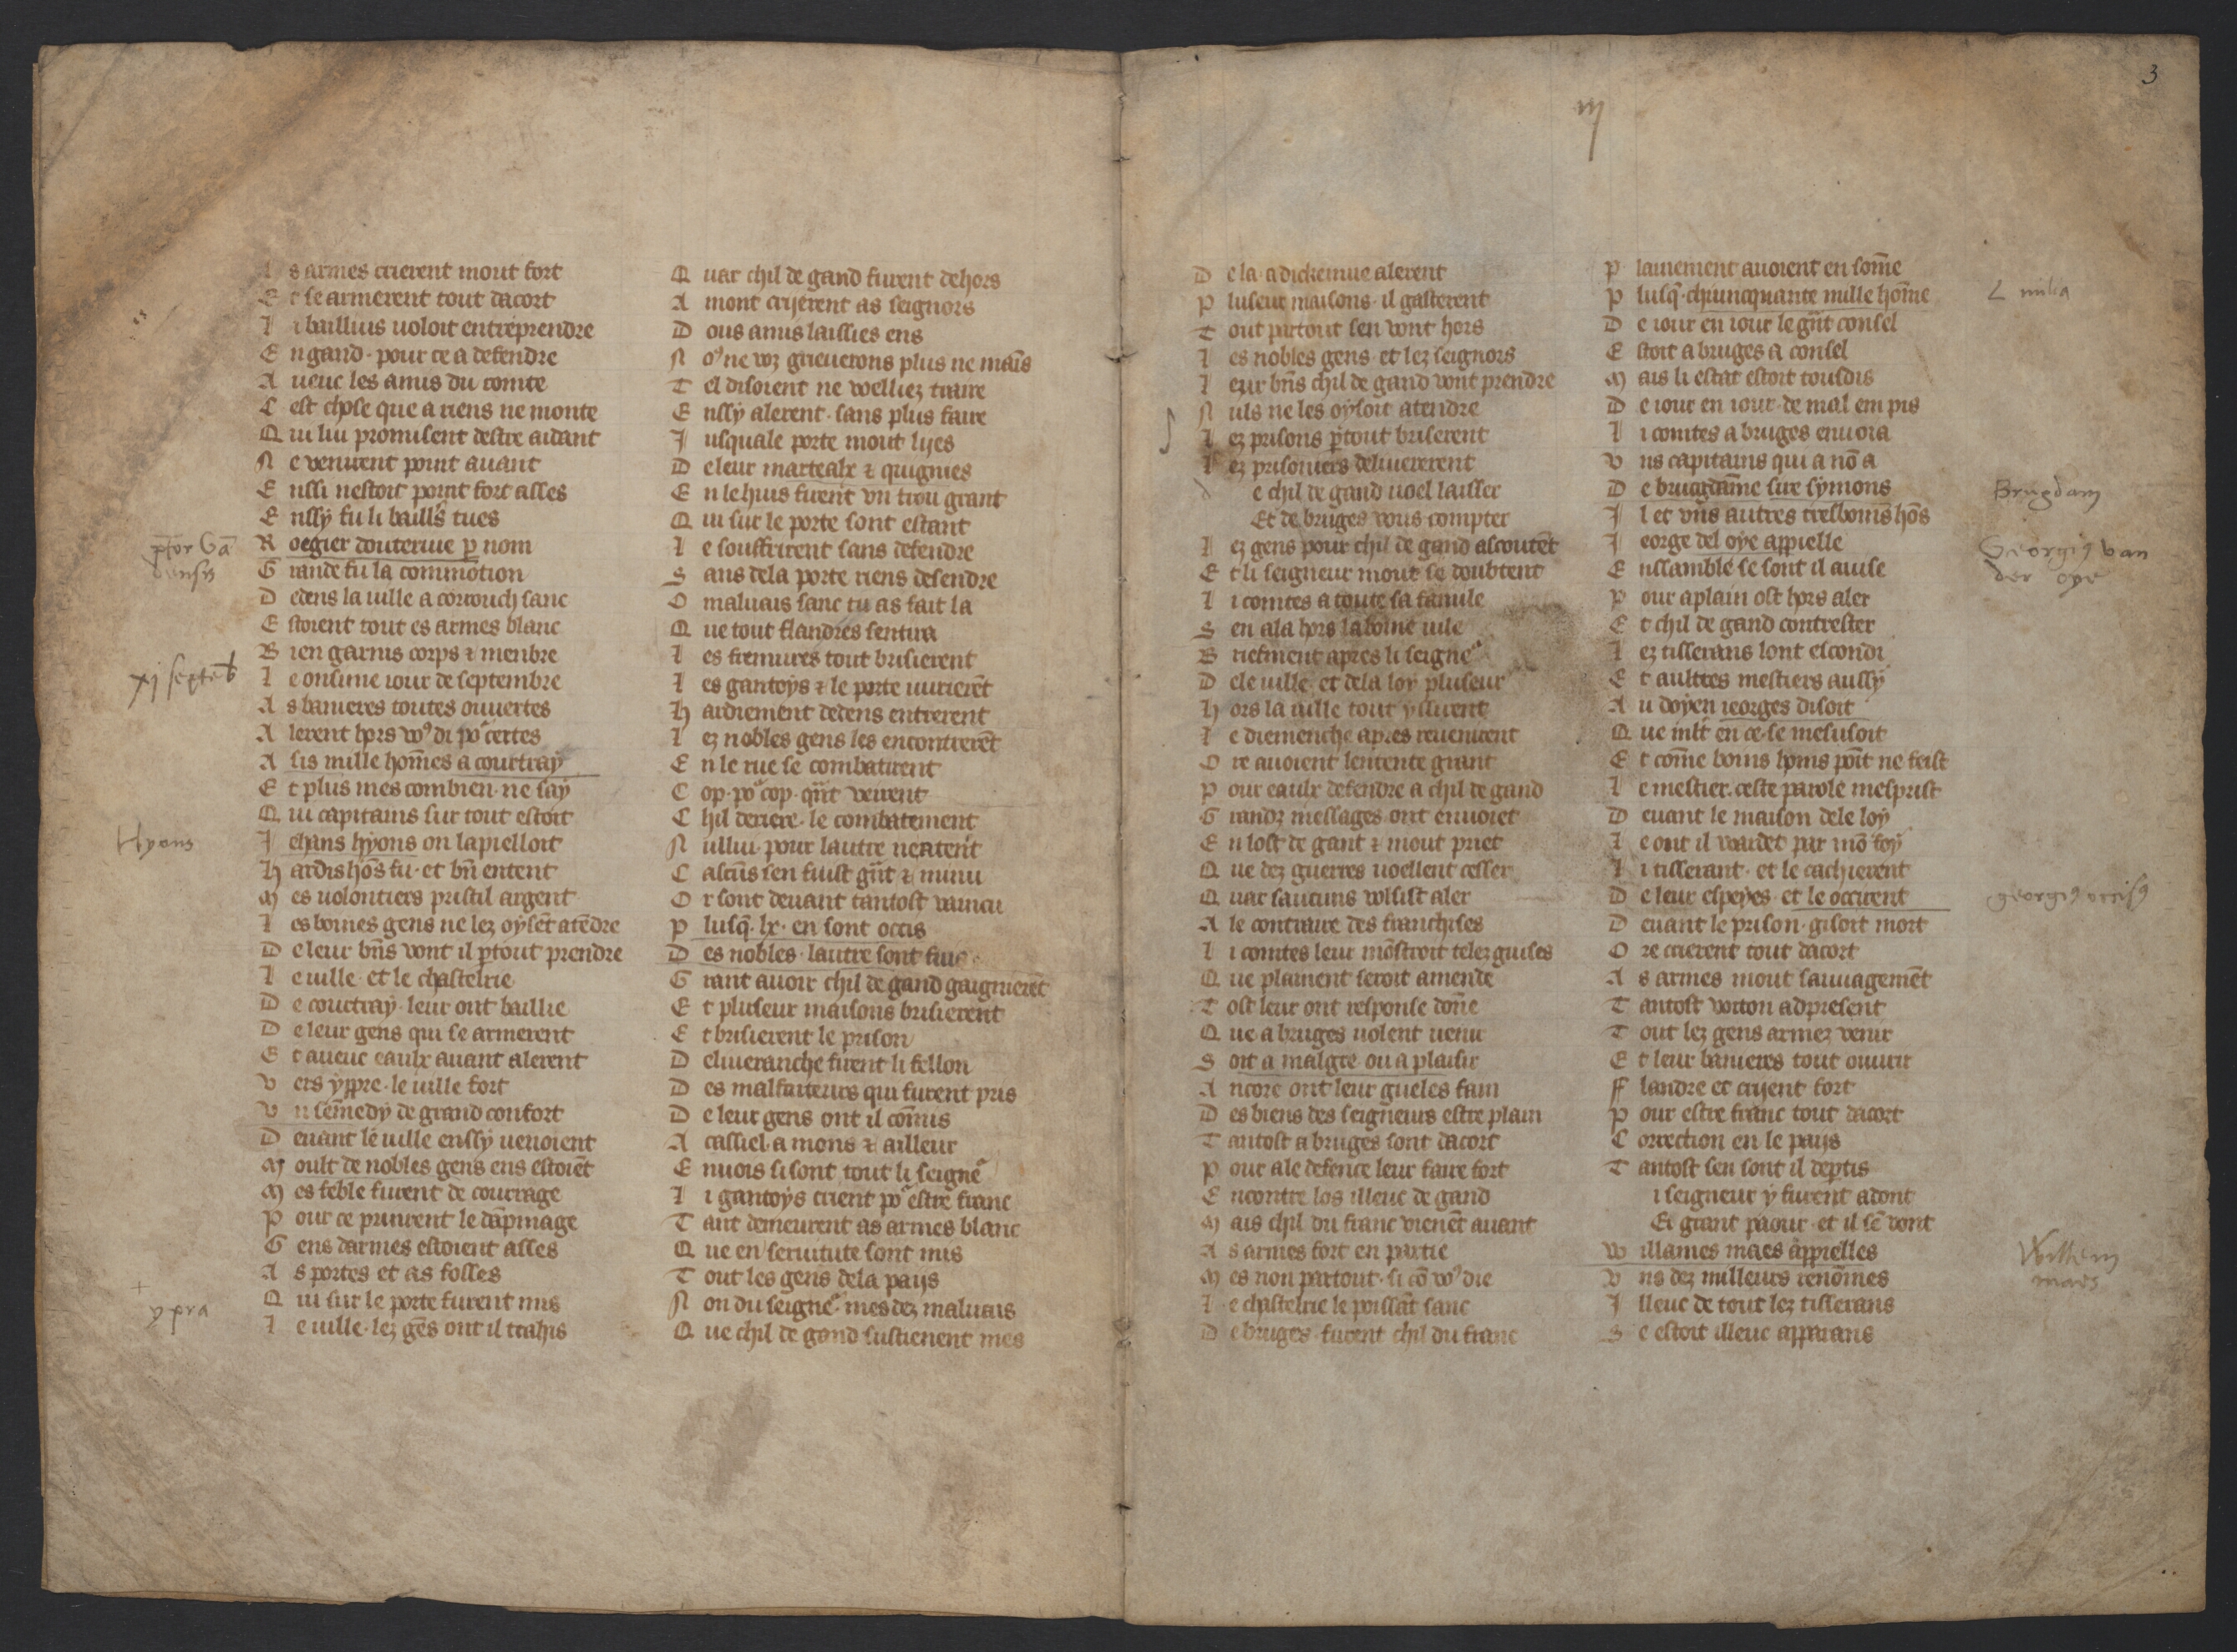 3
iij
A s armes crierent mout fort
E t se armerent tout dacort
L i baillius uoloit entreprendre
E n gand · pour ce a defendre
A ueuc les amis du comte
C est chose que a riens ne monte
Q ui liu promisent destre aidant
N e venirent point auant
E nssi nestoit point fort asses
E nssÿ fu li baillˢ tues
R oegier douteriue ꝑ nom
G rande fu la commotion
D edens la uille a cortouch sanc
E stoient tout es armes blanc
B ien garnis corps ⁊ menbre
L e onsime iour de septembre
A s banieres toutes ouuertes
A lerent hors voꝰ di poʳ certes
A sis mille hom̄es a courtraÿ
E t plus mes combien · ne saÿ
Q ui capitains sur tout estoit
J ehans hÿons on lapielloit
H ardis hōs fu · et bn̄ entent
M es uolontiers pristil argent
L es boines gens ne lez oÿsēt atēdre
D e leur bn̄s vont il ꝑtout prendre
L e uille · et le chastelrie
D e courtraÿ · leur ont baillie
D e leur gens qui se armerent
E t aueuc eaulx auant alerent
V ers ÿppre · le uille fort
V n sem̄edÿ de grand confort
D euant le uille enssÿ uenoient
M oult de nobles gens ens estoiēt
M es feble furent de courrage
P our ce prinrent le dāpmage
G ens darmes estoient asses
A s portes et as fosses
Q ui sur le porte furent mis
L e uille · lez gēs ont il trahis
Q uar chil de gand furent dehors
A mont crijerent as seignors
D ous amis laissies ens
N oꝰ ne voz grieuerons plus ne mais
T el disoient ne welliez traire
E nssÿ alerent · sans plus faire
J usquale porte mout lijes
D e leur martealx ⁊ quignies
E n le huis furent vn trou grant
Q ui sur le porte sont estant
L e souffrirent sans defendre
S ans dela porte riens desendre
O maluais sanc tu as fait la
Q ue tout flandres sentira
L es fremures tout brisierent
L es gantoÿs ⁊ le porte uurierēt
H ardiement dedens entrerent
L ez nobles gens les encontrerēt
E n le rue se combatirent
C op · poʳ cop · qn̄t veirent
C hil deriere · le combatement
N ulluj · pour lautre neatent
C ascūs sen fuist gn̄t ⁊ menu
O r sont deuant tantost vaincu
P lusq̄ · lx · en sont occis
D es nobles · lautre sont fuis
G rant auoir chil de gand gaignierēt
E t pluseur maisons brisierent
E t brisierent le prison
D eliueranche firent li fellon
D es malfaiteurs qui furent pris
D e leur gens ont il com̄is
A cassiel · a mons ⁊ ailleur
E nuois si sont tout li seigneʳ
L i gantoÿs crient poʳ estre franc
T ant demeurent as armes blanc
Q ue en seruitute sont mis
T out les gens dela paijs
N on du seigneʳ · mes dez maluais
Q ue chil de gand sustienent mes
D e la · a dickemue alerent
P luseur maisons · il gasterent
T out partout sen vont hors
L es nobles gens · et lez seignors
L eur bn̄s chil de gand vont prendre
N uls ne les oÿsoit atendre
L ez prisons ꝑtout briserent
L ez prisoniers deliuererent
D e chil de gand uoel laisser
Et de bruges vous compter
L ez gens pour chil de gand ascoutēt
E t li seigneur mout se doubtent
L i comtes a toute sa famile
S en ala hors la boine uile
B riefment apres li seigneʳ
D ele uille · et dela loÿ pluseur
H ors la uille tout ÿssirent
L e diemenche apres reuenirent
O re auoient lentente grant
P our eaulx defendre a chil de gand
G randz messages ont enuoiet
E n lost de gant ⁊ mout priet
Q ue dez guerres uoellent cesser
Q uar saucuns volsist aler
A le contraire des franchises
L i comtes leur mōstroit telez guises
Q ue plainent seroit amende
T ost leur ont response don̄e
Q ue a bruges uolent uenir
S oit a malgre ou a plaisir
A ncore ont leur gueles fain
D es biens des seigneurs estre plain
T antost a bruges sont dacort
P our ale defence leur faire fort
E ncontre los illeuc de gand
M ais chil du franc vienēt auant
A s armes fort en partie
M es non partout · si cō voꝰ die
L e chastelrie le poissāt sanc
D e bruges · furent chil du franc
P lainement auoient en som̄e
P lusq̄ · chiuncquante mille hom̄e
D e iour en iour le gn̄t consel
E stoit a bruges a consel
M ais li estat estoit tousdis
D e iour en iour · de mal em pis
L i comtes a bruges enuoia
V ns capitains qui a nō a
D e brugdam̄e sire sÿmons
J l et vn̄s autres tresboinīs hōs
J eorge del oÿe appielle
E nssamble se sont il auise
P our aplain ost hors aler
E t chil de gand contrester
L ez tisserans sont escondi
E t aultres mestiers aussÿ
A u doÿen ieorges disoit
Q ue mlt̄ en ce se mesusoit
E t com̄e boins homs poīt ne feist
L e mestier · ceste parole mesprist
D euant le maison dele loÿ
L e ont il wardet par mō foÿ
L i tisserant · et le cachierent
D e leur espeÿes · et le occirent
D euant le prison · gisoit mort
O re crierent tout dacort
A s armes mout sauuagemēt
T antost voiton adpresent
T out lez gens armez venir
E t leur banieres tout ouurir
F landre et crijent fort
P our estre franc tout dacort
C orrection en le paijs
T antost sen sont il deptis
i seigneur ÿ furent adont
En grant paour · et il sē vont
W illames maes appielles
V ns dez milleurs renōmes
J lleuc de tout lez tisserans
S e estoit illeuc apparans
xj septēb
Hyons
ypra
L milia
Brugdam
Georgiꝰ van
der oye
georgiꝰ occisꝰ
Wilhem
maes